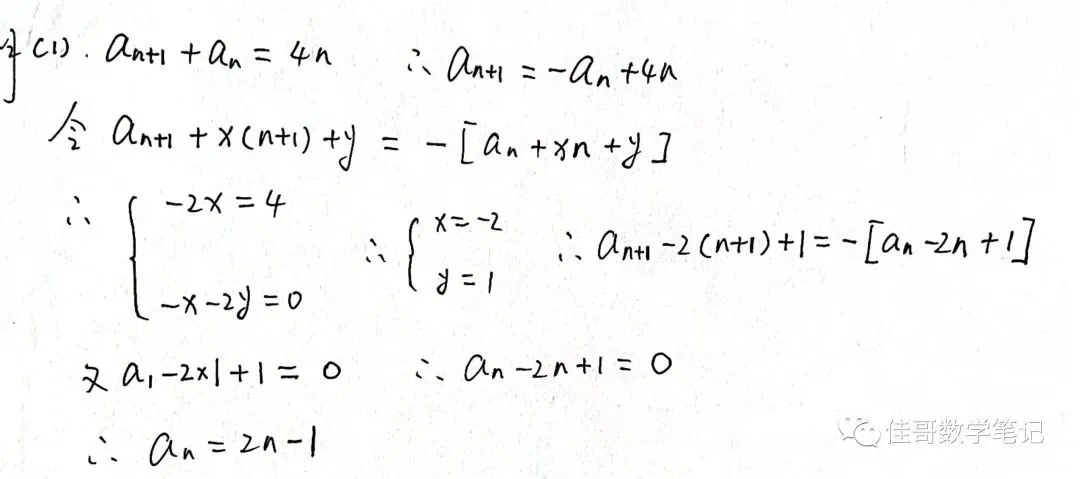 (1). aₙ₊₁ + aₙ = 4n ∴ aₙ₊₁ = -aₙ + 4n
令 aₙ₊₁ + x(n+1) + y = -[aₙ + xn + y]
∴ { -2x = 4 ∴ { x = -2 ∴ aₙ₊₁ - 2(n+1) + 1 = -[aₙ - 2n + 1]
-x - 2y = 0 y = 1
又 a₁ - 2×1 + 1 = 0 ∴ aₙ - 2n + 1 = 0
∴ aₙ = 2n - 1
佳哥数学笔记